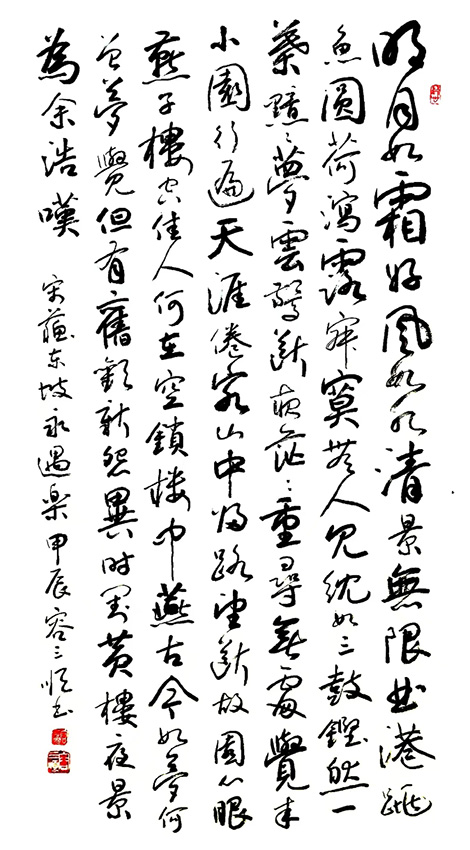 明月如霜好風如水清景無限曲港跳
魚圓荷瀉露寂寞無人見紞如三鼓鏗然一
葉黯〻夢雲驚斷夜茫〻重尋無處覺來
小園行遍天涯倦客山中歸路望斷故園心眼
燕子樓空佳人何在空鎖樓中燕古今如夢何
曾夢覺但有舊歡新怨異時對黃樓夜景
為余浩嘆
宋蘇東坡永遇樂甲辰容三順书